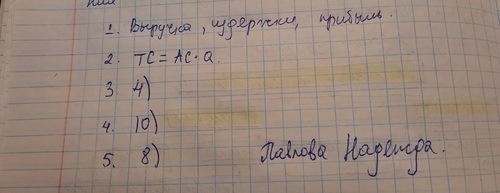 1. Выручка, издержки, прибыль.
2. TC = AC · Q.
3. 4)
4. 10)
5. 8) Павлова Надежда.